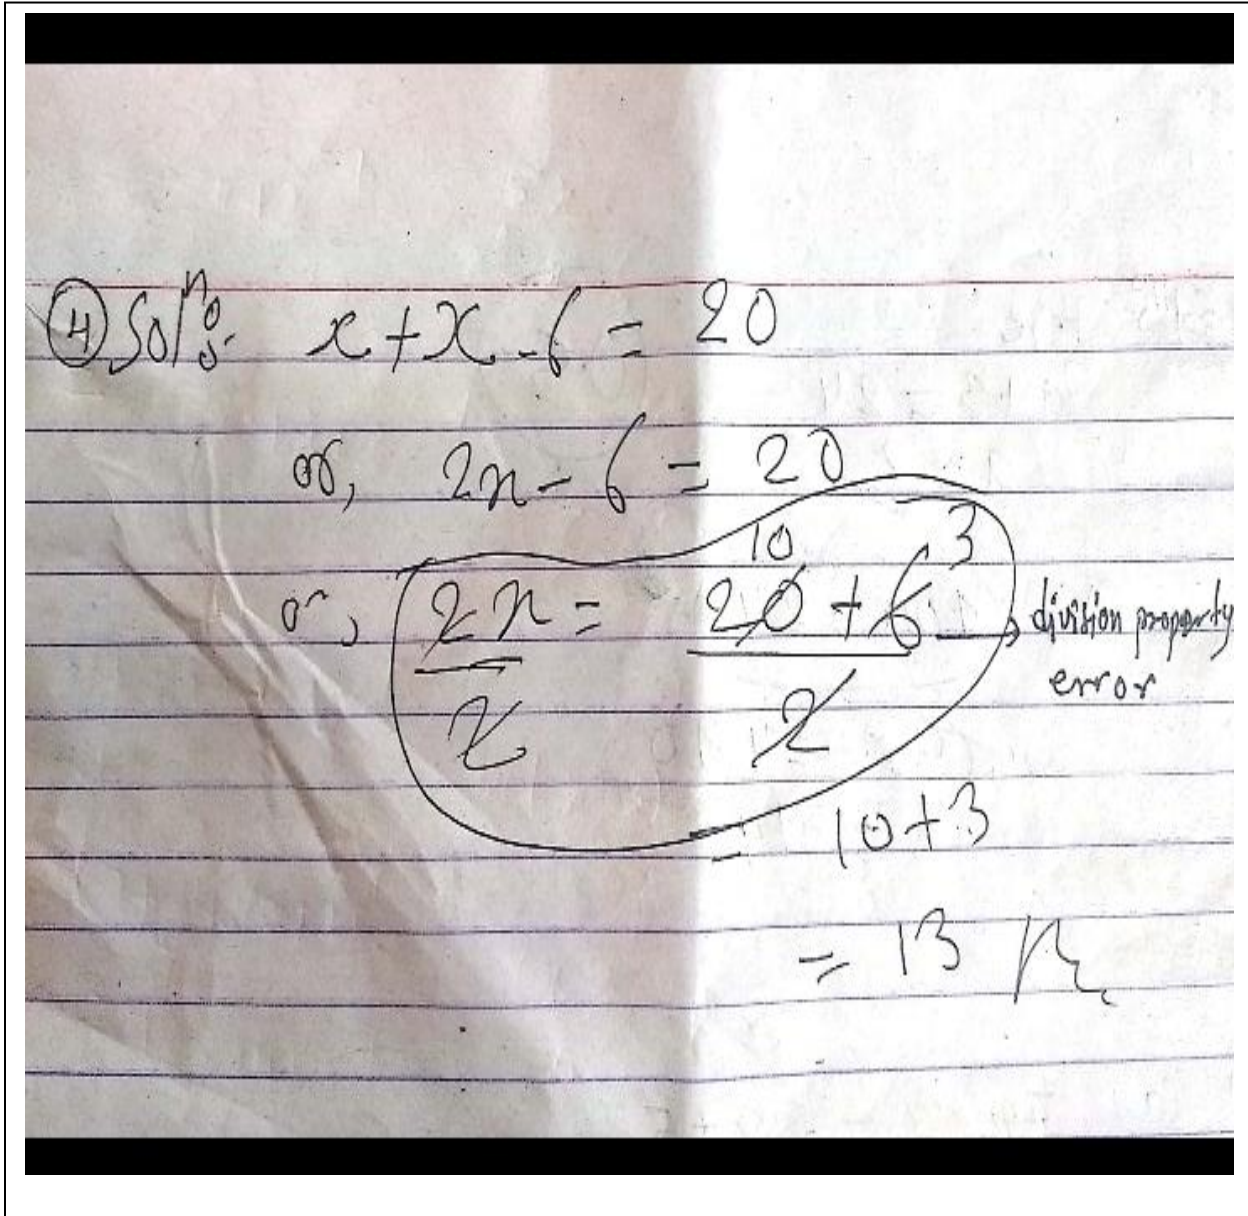 ④ Solⁿ: x + x - 6 = 20
or, 2x - 6 = 20
10 3
or, 2x = 20 + 6 → division property
error
2 2
= 10 + 3
= 13